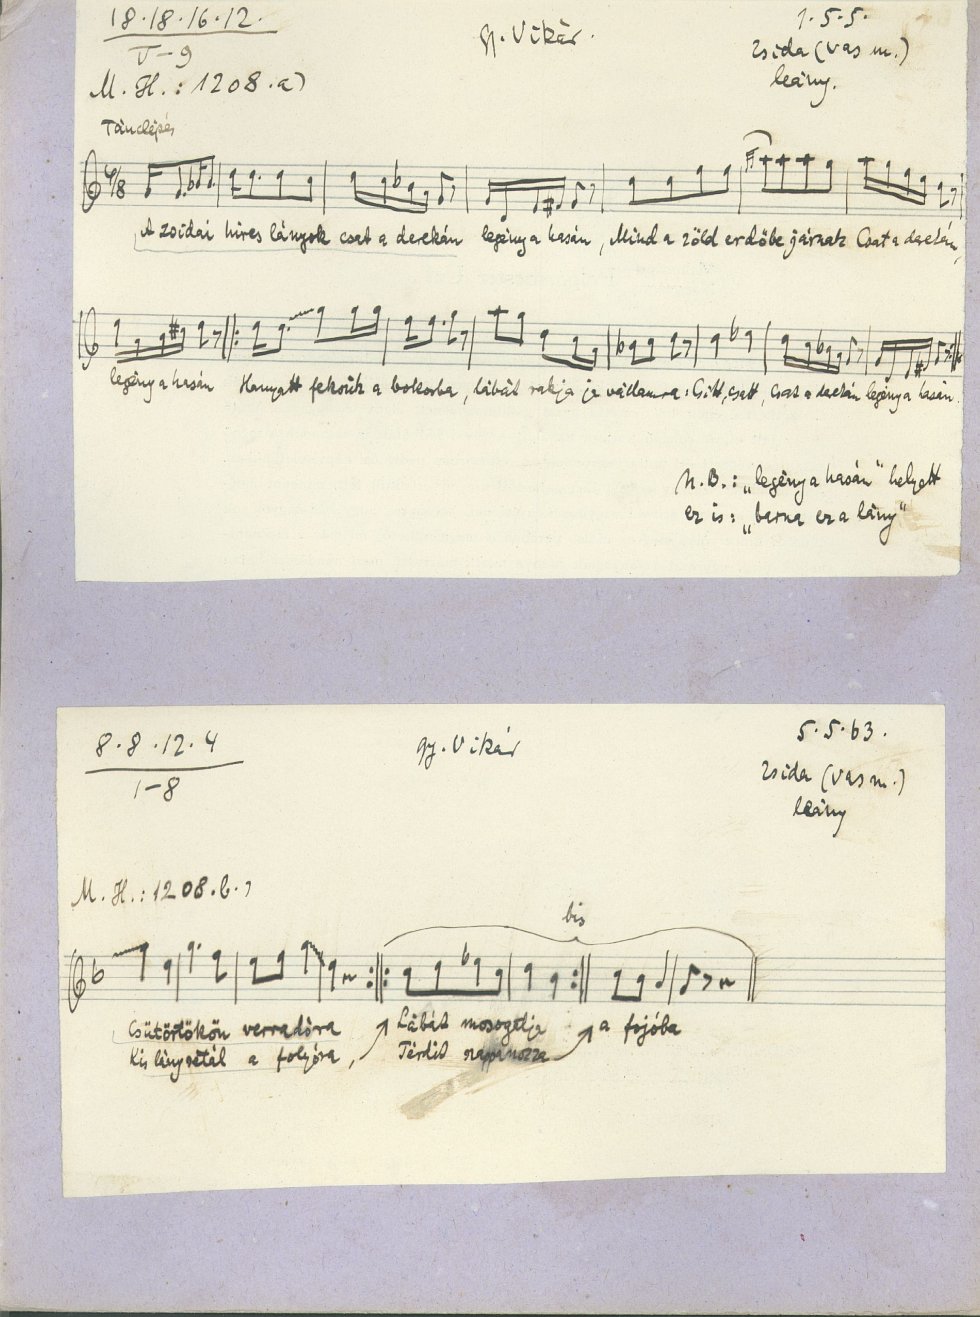 18.18.16.12.
V-9
gy. Vikár.
1.5.5.
Zsida (Vas m.)
leány.
M. H.: 1208.a)
Tánclépés
4/8
A zsidai hires lányok csat a derekán legény a hasán, Mind a zöld erdőbe járnak Csat a derekán,
legény a hasán Hanyatt feksük a bokorba, Lábát rakja ja vállamra: Csitt, csatt, csat a derekán legény a hasán.
N.B.: „legény a hasán" helyett
ez is: „barna ez a lány"
8.8.12.4
1-8
gy. Vikár
5.5.b3.
Zsida (Vas m.)
leány
M. H.: 1208.b.)
bis
Csütörtökön verradóra Lábát mosogatja a fojóba
Kis lány sétál a folyóra, Térdit szappanozza